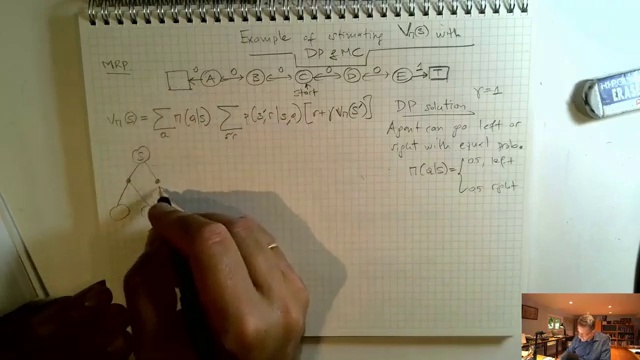 Example of estimating Vπ(s) with
DP & MC
MRP
0 A 0 B 0 C 0 D 0 E 1 T
start
Vπ(s) = Σ π(a|s) Σ p(s', r | s, a) [r + γ Vπ(s')]
a s', r
DP solution γ = 1
Agent can go left or
right with equal prob.
π(a|s) = { 0.5, left
0.5 right
S
ERAS